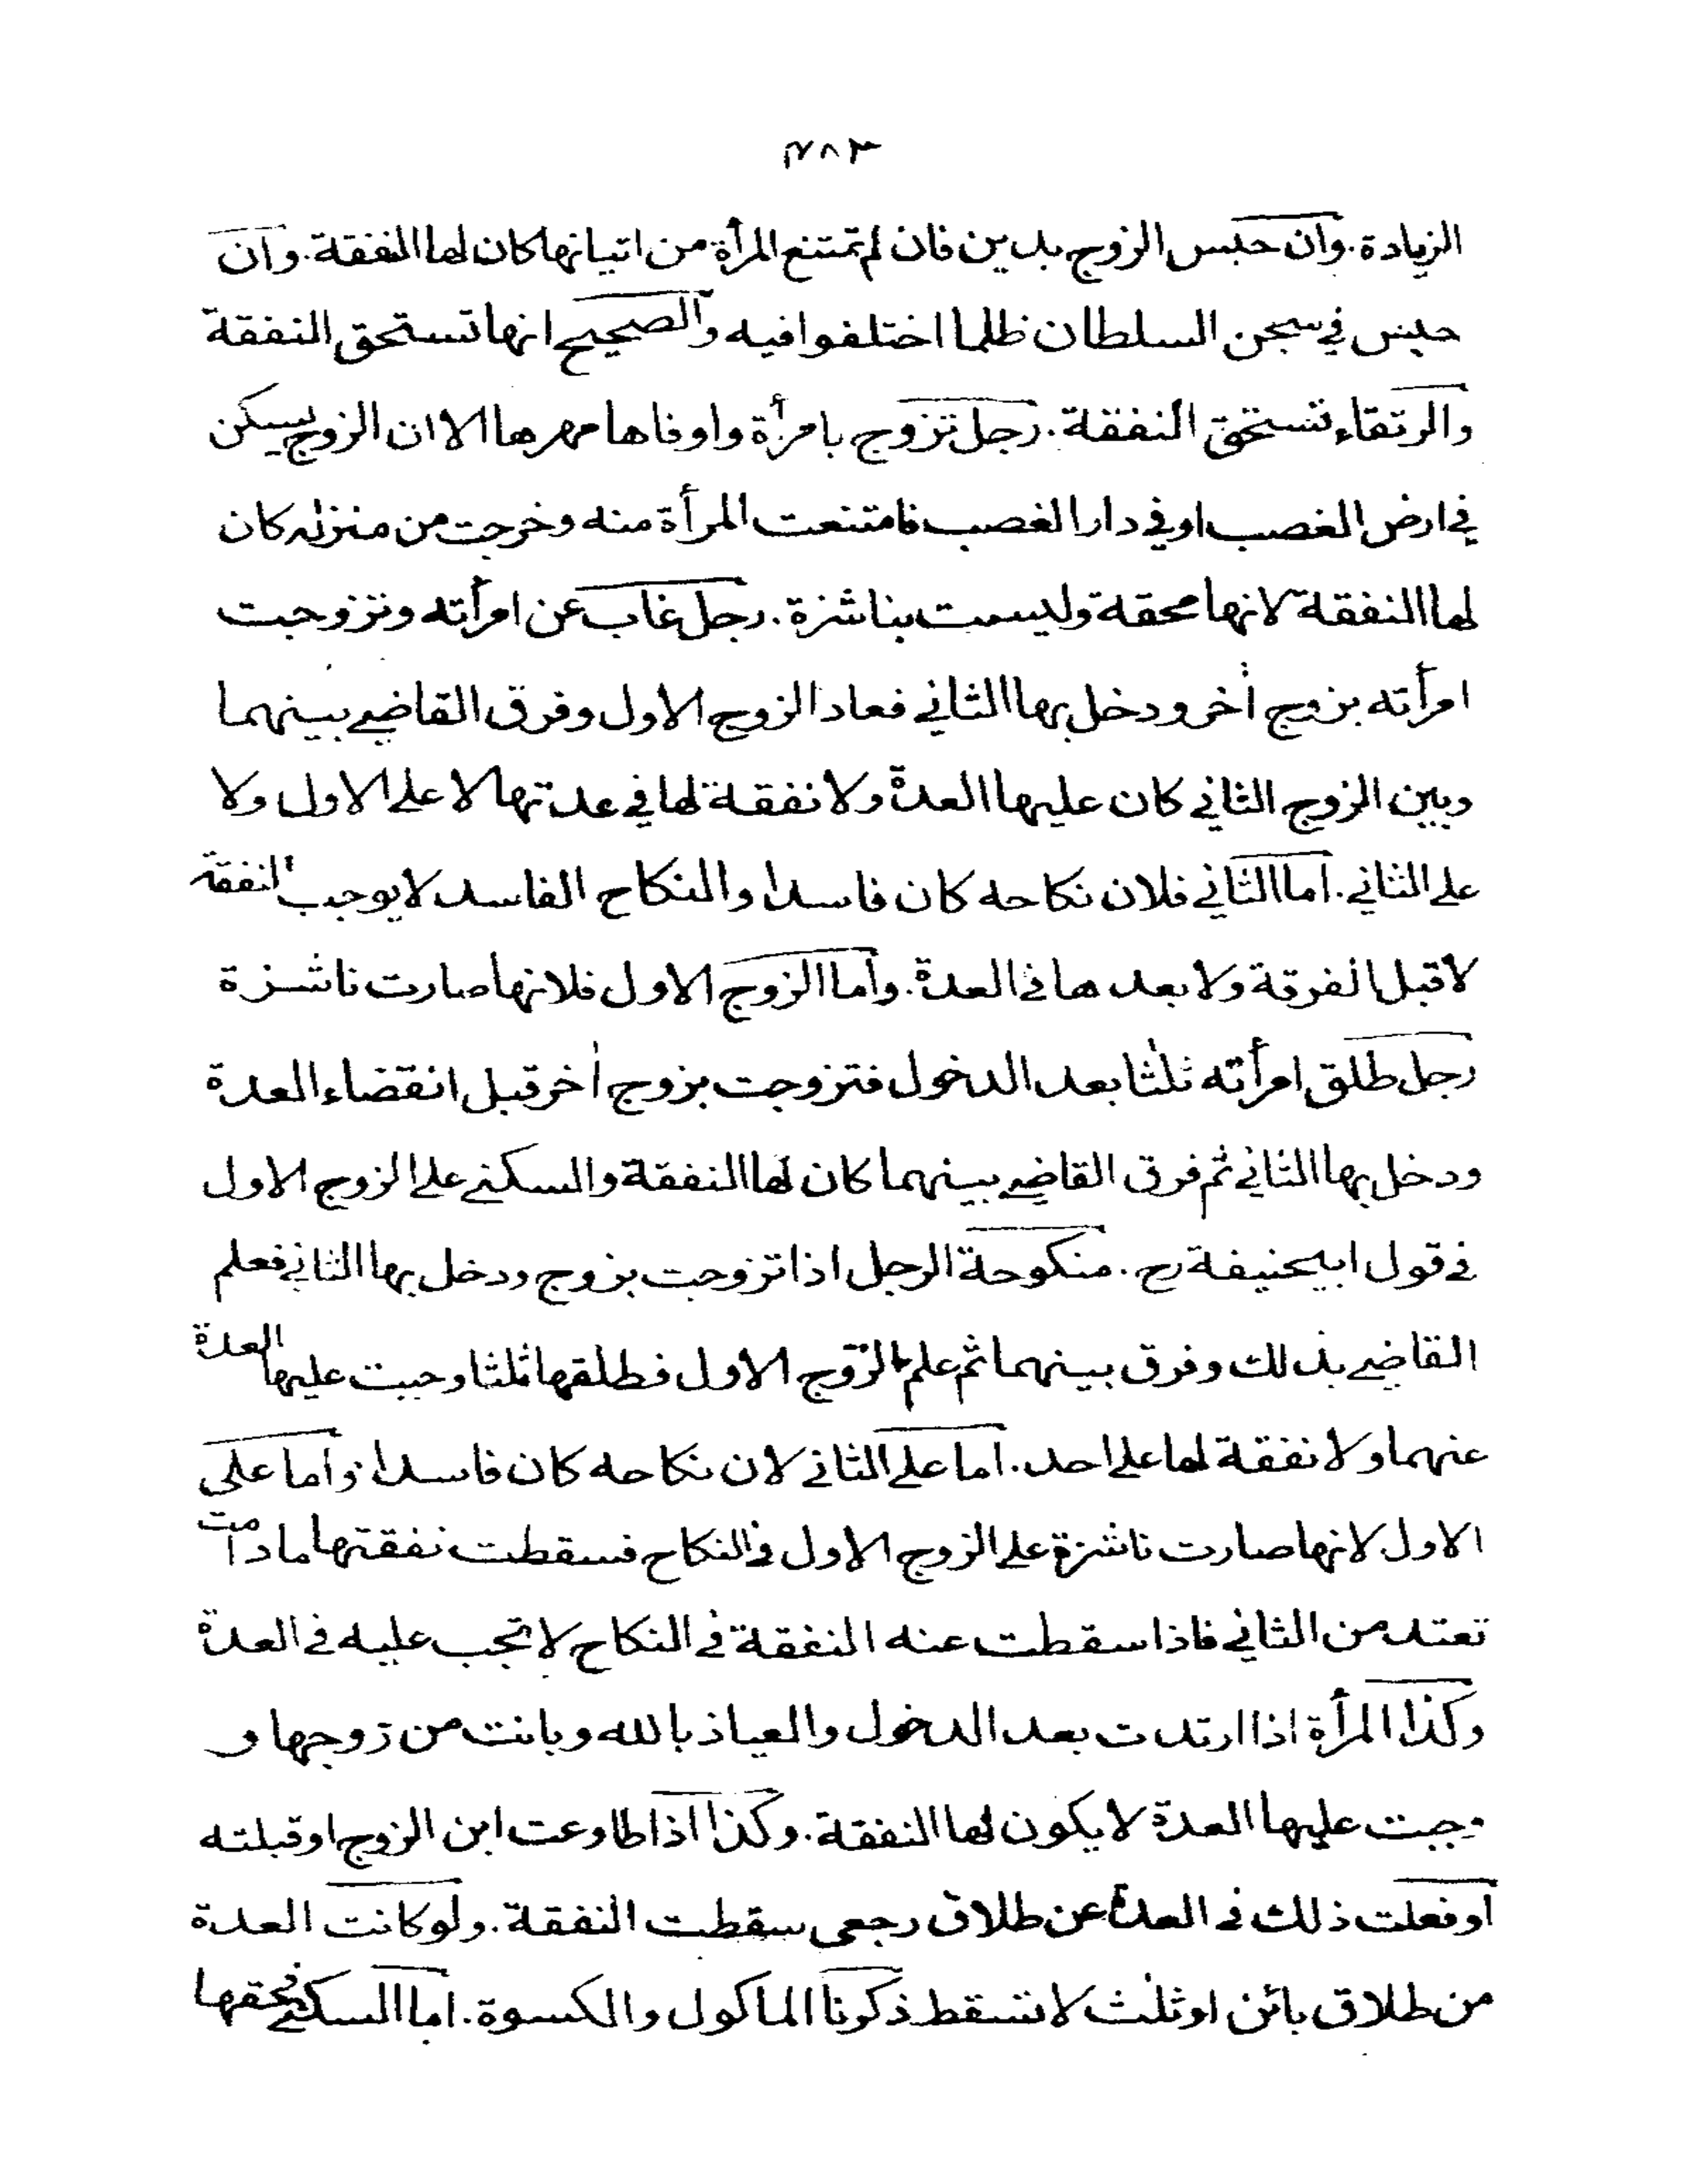 ٤٨٣
الزيادة. وان حبس الزوج بدين فان لم تمتنع المرأة من اتيانها كان لها النفقة. وان
حبس في سجن السلطان ظلما اختلفوا فيه والصحيح انها تستحق النفقة
والرتقاء تستحق النفقة. رجل تزوج بامرأة واوفاها مهرها الا ان الزوج يسكن
في ارض الغصب او في دار الغصب فامتنعت المرأة منه وخرجت من منزله كان
لها النفقة لانها محقة وليست بناشزة. رجل غاب عن امرأته وتزوجت
امرأته بزوج أخر ودخل بها الثاني فعاد الزوج الاول وفرق القاضي بينهما
وبين الزوج الثاني كان عليها العدة ولا نفقة لها في عدتها لا على الاول ولا
على الثاني. اما الثاني فلان نكاحه كان فاسدا والنكاح الفاسد لا يوجب النفقة
لا قبل الفرقة ولا بعدها في العدة. وأما الزوج الاول فلانها صارت ناشزة
رجل طلق امرأته ثلثا بعد الدخول فتزوجت بزوج أخر قبل انقضاء العدة
ودخل بها الثاني ثم فرق القاضي بينهما كان لها النفقة والسكنى على الزوج الاول
في قول ابيحنيفة رح. منكوحة الرجل اذا تزوجت بزوج ودخل بها الثاني فعلم
القاضي بذلك وفرق بينهما ثم علم الزوج الاول فطلقها ثلثا وجبت عليها العدة
عنهما ولا نفقة لها على احد. اما على الثاني لان نكاحه كان فاسدا وأما على
الاول لانها صارت ناشزة على الزوج الاول في النكاح فسقطت نفقتها ما دامت
تعتد من الثاني فاذا سقطت عنه النفقة في النكاح لا تجب عليه في العدة
وكذا المرأة اذا ارتدت بعد الدخول والعياذ بالله وبانت من زوجها و
وجبت عليها العدة لا يكون لها النفقة. وكذا اذا طاوعت ابن الزوج او قبلته
او فعلت ذلك في العدة عن طلاق رجعى سقطت النفقة. ولو كانت العدة
من طلاق بائن او ثلث لا تسقط ذكرنا الماكول والكسوة. اما السكنى فحقها